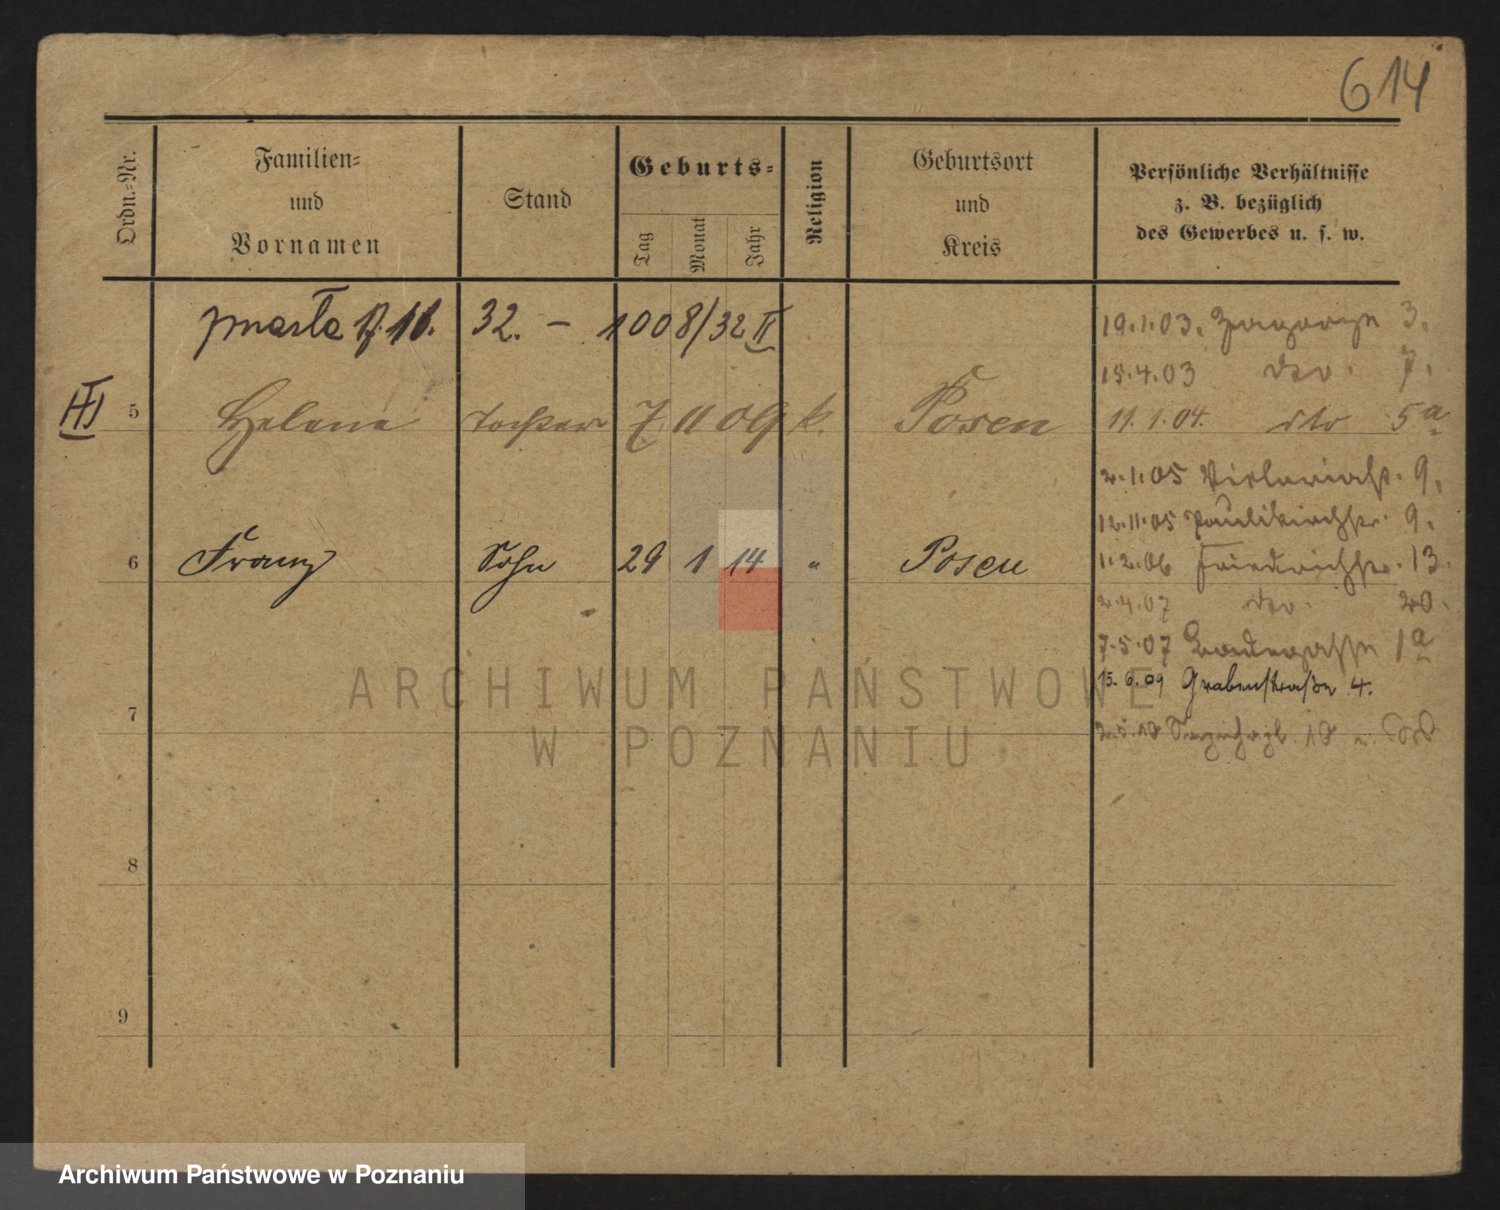 614
Ordn.-Nr.
Familien-
und
Vornamen
Stand
Geburts-
Tag
Monat
Jahr
Religion
Geburtsort
und
Kreis
Persönliche Verhältnisse
z. B. bezüglich
des Gewerbes u. s. w.
zmarła 32. – 1008/32 II
19.1.03. Zagorze 3.
15.4.03 dto. 7.
III 5 Helene Tochter 7 11 09 k. Posen
11.1.04. dto 5a
2.1.05 Victoriastr. 9.
12.11.05 Paulikirchstr. 9.
6 Franz Sohn 29 1 14 " Posen
1.2.06 Friedrichstr. 13.
2.4.07 dto. 20.
7.5.07 1a
15.6.09 Grabenstraße 4.
7
8
9
ARCHIWUM PAŃSTWOWE
W POZNANIU
Archiwum Państwowe w Poznaniu